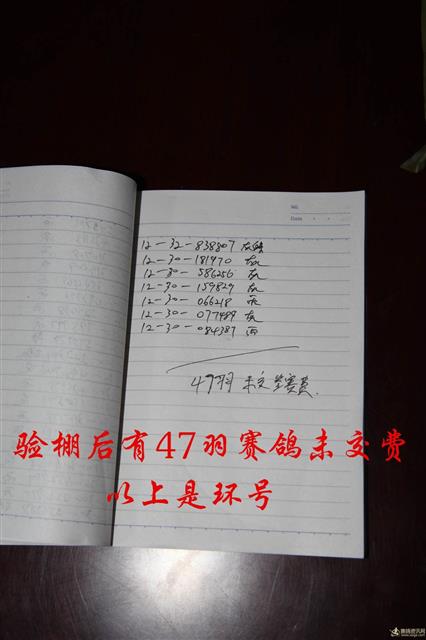 NO.
Date
12-32-838807 灰
12-30-181970 灰
12-30-586256 灰
12-30-159829 灰
12-30-066218 灰
12-30-077489 灰
12-30-084387 雨
47羽 未交参赛费.
验棚后有47羽赛鸽未交费
以上是环号
赛鸽资讯网